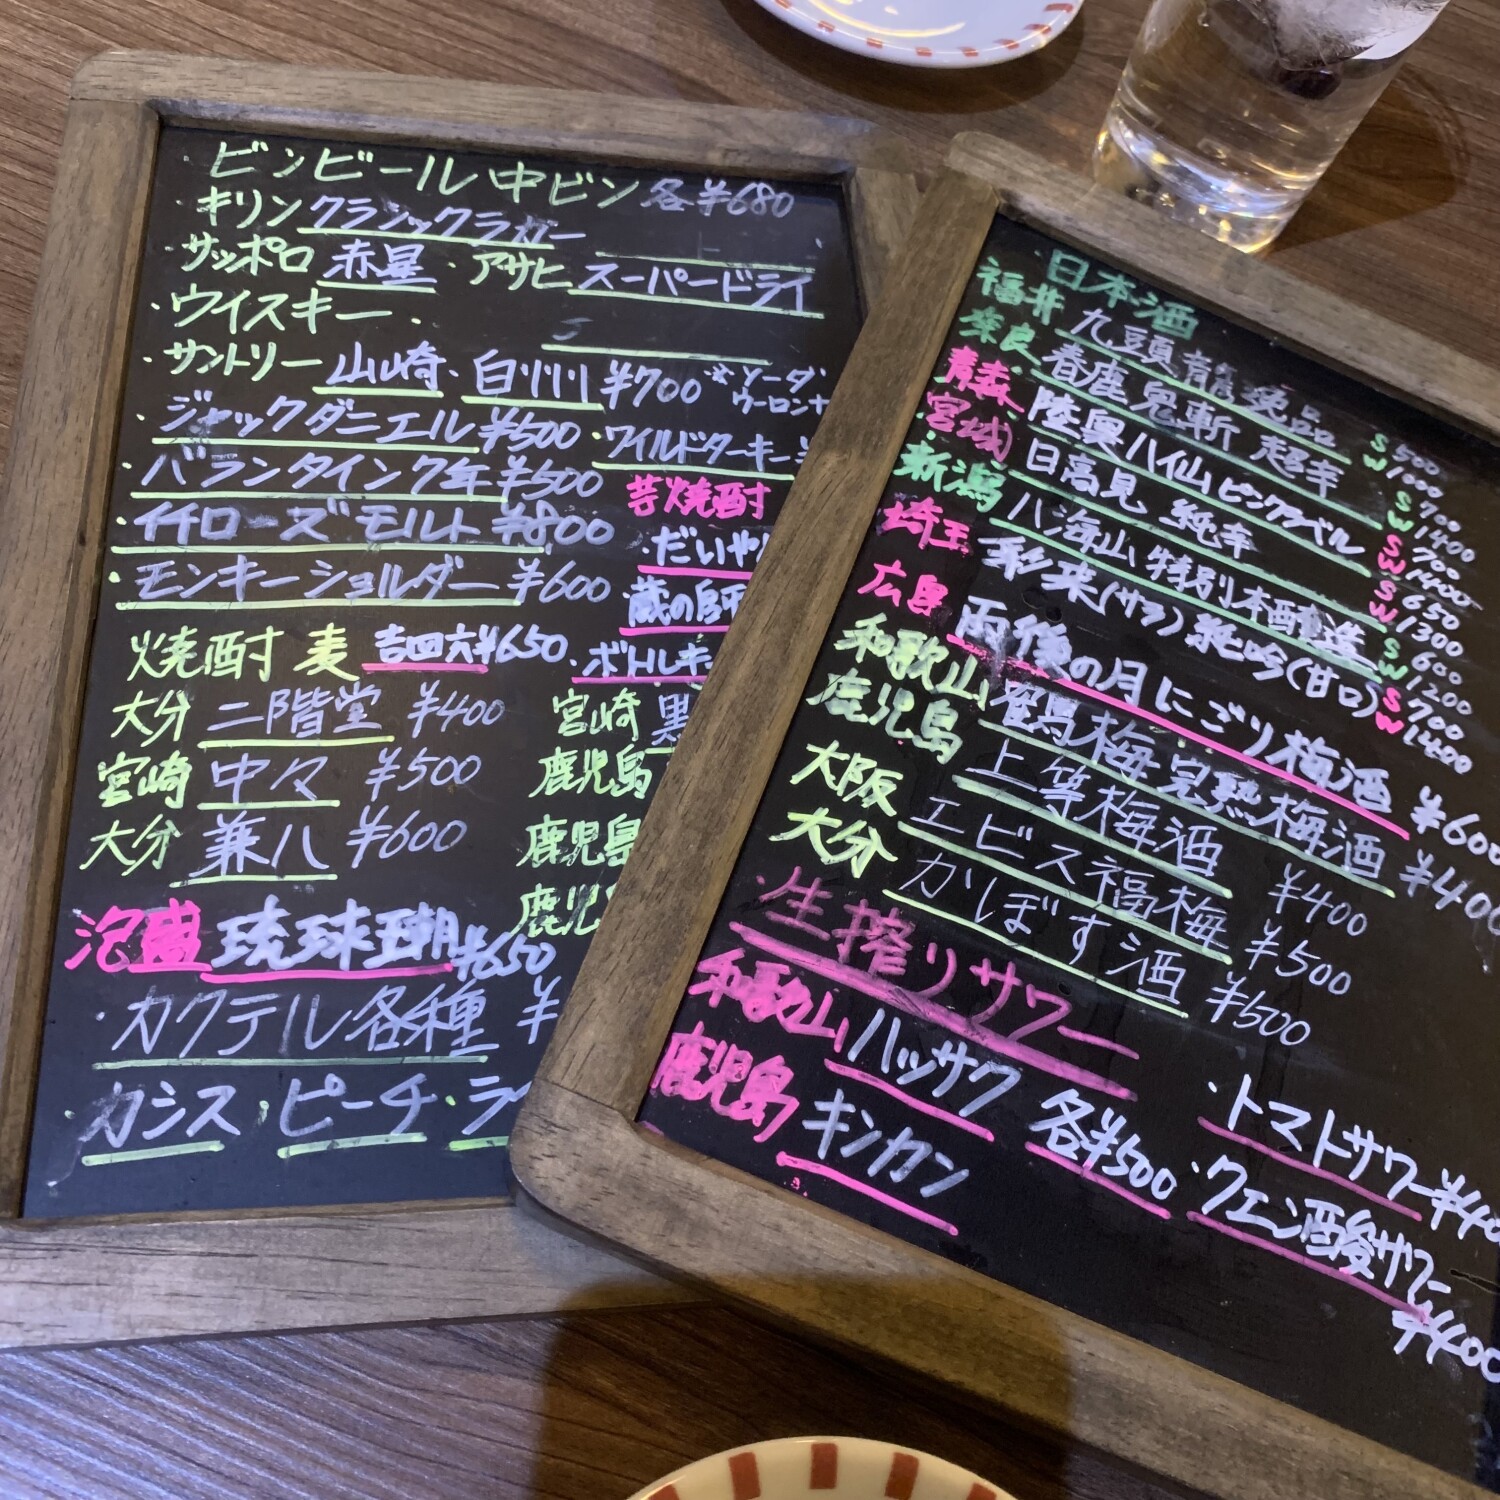 ビンビール 中ビン 各¥680
キリン クラシックラガー
サッポロ 赤星・アサヒ スーパードライ
・ウイスキー・
・サントリー 山崎・白州 ¥700 ※ソーダ
・ジャックダニエル ¥500 ・ワイルドターキー
・バランタイン7年 ¥500
・イチローズモルト ¥800
・モンキーショルダー ¥600
芋焼酎
・だいやめ
・蔵の師
・ボトルキ
焼酎 麦 吉四六 ¥650
大分 二階堂 ¥400
宮崎 中々 ¥500
大分 兼八 ¥600
宮崎 黒
鹿児島
鹿児島
鹿児
泡盛 琉球王朝 ¥650
・カクテル各種 ¥
・カシス・ピーチ・ラ
日本酒
福井 九頭龍 逸品 S 500 W 1000
奈良 春鹿 鬼斬 超辛 S 700 W 1400
青森 陸奥八仙 ピンクラベル S 700 W 1400
宮城 日高見 純辛 S 650 W 1300
新潟 八海山 特別本醸造 S 600 W 1200
埼玉 彩來(サラ) 純吟(甘口) S 700 W 1400
広島 雨後の月 にごり梅酒 ¥600
和歌山 鶴梅 完熟梅酒 ¥400
鹿児島 上等梅酒 ¥400
大阪 エビス福梅 ¥500
大分 かぼす酒 ¥500
・生搾りサワー
和歌山 ハッサク
鹿児島 キンカン
各¥500
・トマトサワー ¥400
・クエン酸サワー ¥400